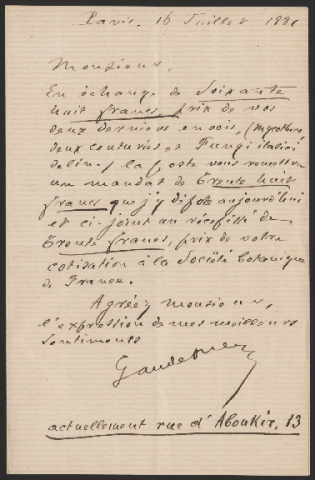 Paris, 16 Juillet 1881
Monsieur,
En échange de Soixante
huit francs, prix de vos
deux derniers envois, (Mycotheca,
deux centuries et Fungi italici
delin.) la poste vous remettra
un mandat de Trente huit
francs que j'y dépose aujourd'hui
et ci-joint un récépissé de
Trente francs, prix de votre
cotisation à la Société botanique
de France.
Agréez, Monsieur,
l'expression de mes meilleurs
Sentiments
actuellement rue d'Aboukir, 13